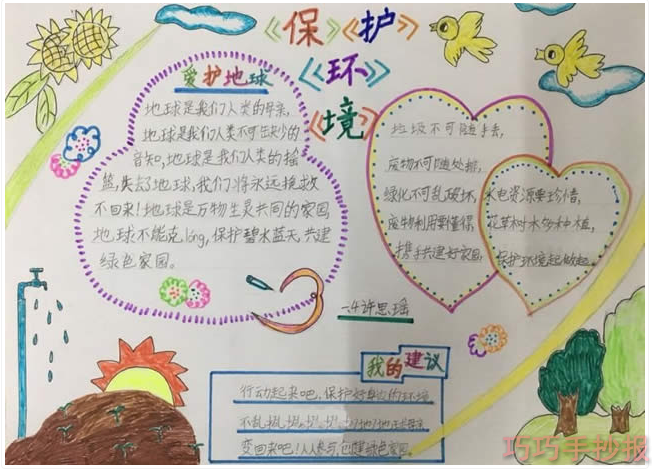 《保护》
《环》
《境》
爱护地球
地球是我们人类的母亲,
地球是我们人类不可缺少的
音知,地球是我们人类的摇
篮,失去地球,我们将永远挽救
不回来!地球是万物生灵共同的家园
地球不能克long,保护碧水蓝天,共建
绿色家园。
垃圾不可随手丢,
废物不可随处掷,
绿化不可乱破坏,
废物利用要懂得,
携手共建好家园,
水电资源要珍惜,
花草树木勿种植,
保护环境起做起。
一4许思瑶
我的建议
行动起来吧,保护好身边的环境
不乱扔垃圾,
变回来吧!人人参与,创建绿色家园。
巧巧手抄报